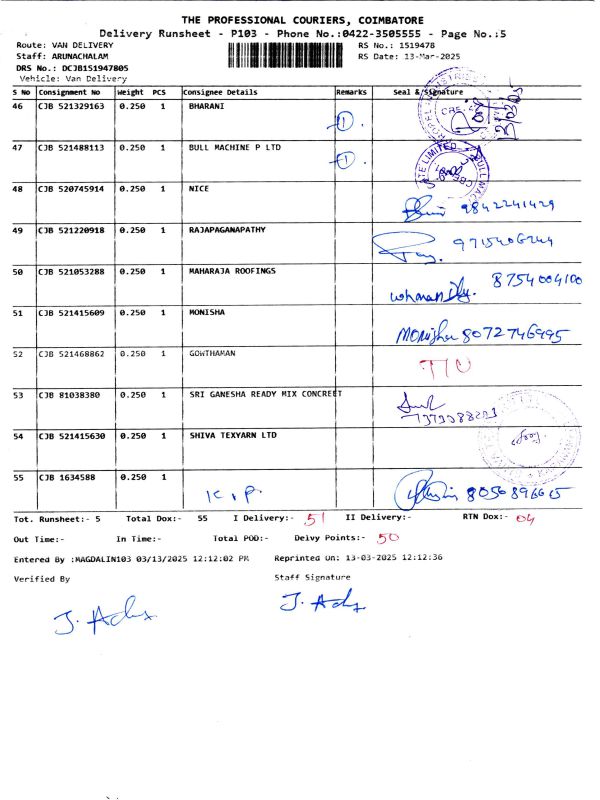 THE PROFESSIONAL COURIERS, COIMBATORE
Delivery Runsheet - P103 - Phone No.:0422-3505555 - Page No.:5
Route: VAN DELIVERY RS No.: 1519478
Staff: ARUNACHALAM RS Date: 13-Mar-2025
DRS No.: DCJB151947805
Vehicle: Van Delivery
S No Consignment No Weight PCS Consignee Details Remarks Seal & Signature
46 CJB 521329163 0.250 1 BHARANI 1
47 CJB 521488113 0.250 1 BULL MACHINE P LTD 1
48 CJB 520745914 0.250 1 NICE 9842241429
49 CJB 521220918 0.250 1 RAJAPAGANAPATHY
50 CJB 521053288 0.250 1 MAHARAJA ROOFINGS 8754004100
51 CJB 521415609 0.250 1 MONISHA Monisha 8072746995
52 CJB 521468862 0.250 1 GOWTHAMAN
53 CJB 81038380 0.250 1 SRI GANESHA READY MIX CONCREET
54 CJB 521415630 0.250 1 SHIVA TEXYARN LTD
55 CJB 1634588 0.250 1 K.P. 8056896615
Tot. Runsheet:- 5 Total Dox:- 55 I Delivery:- 51 II Delivery:- RTN Dox:- 04
Out Time:- In Time:- Total POD:- Delvy Points:- 50
Entered By :MAGDALIN103 03/13/2025 12:12:02 PM Reprinted On: 13-03-2025 12:12:36
Verified By Staff Signature